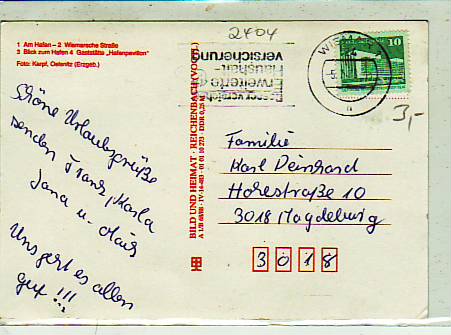 2404
1 Am Hafen – 2 Wismarsche Straße
3 Blick zum Hafen 4 Gaststätte „Hafenpavillon"
Foto: Karpf, Oelsnitz (Erzgeb.)
Besser versichert
Erweiterte
Haushalt-
versicherung
WISMA
10
3,-
Schöne Urlaubsgrüße
senden Franz, Karla
Jana u.
Uns geht es allen
gut !!!
BILD UND HEIMAT · REICHENBACH (VOGTL.)
A 1/B 68/88 · IV-14-483 · 01 01 10 273 · DDR 0,25 M
Familie
Karl Deinhard
Holzstraße 10
3018 Magdeburg
3018